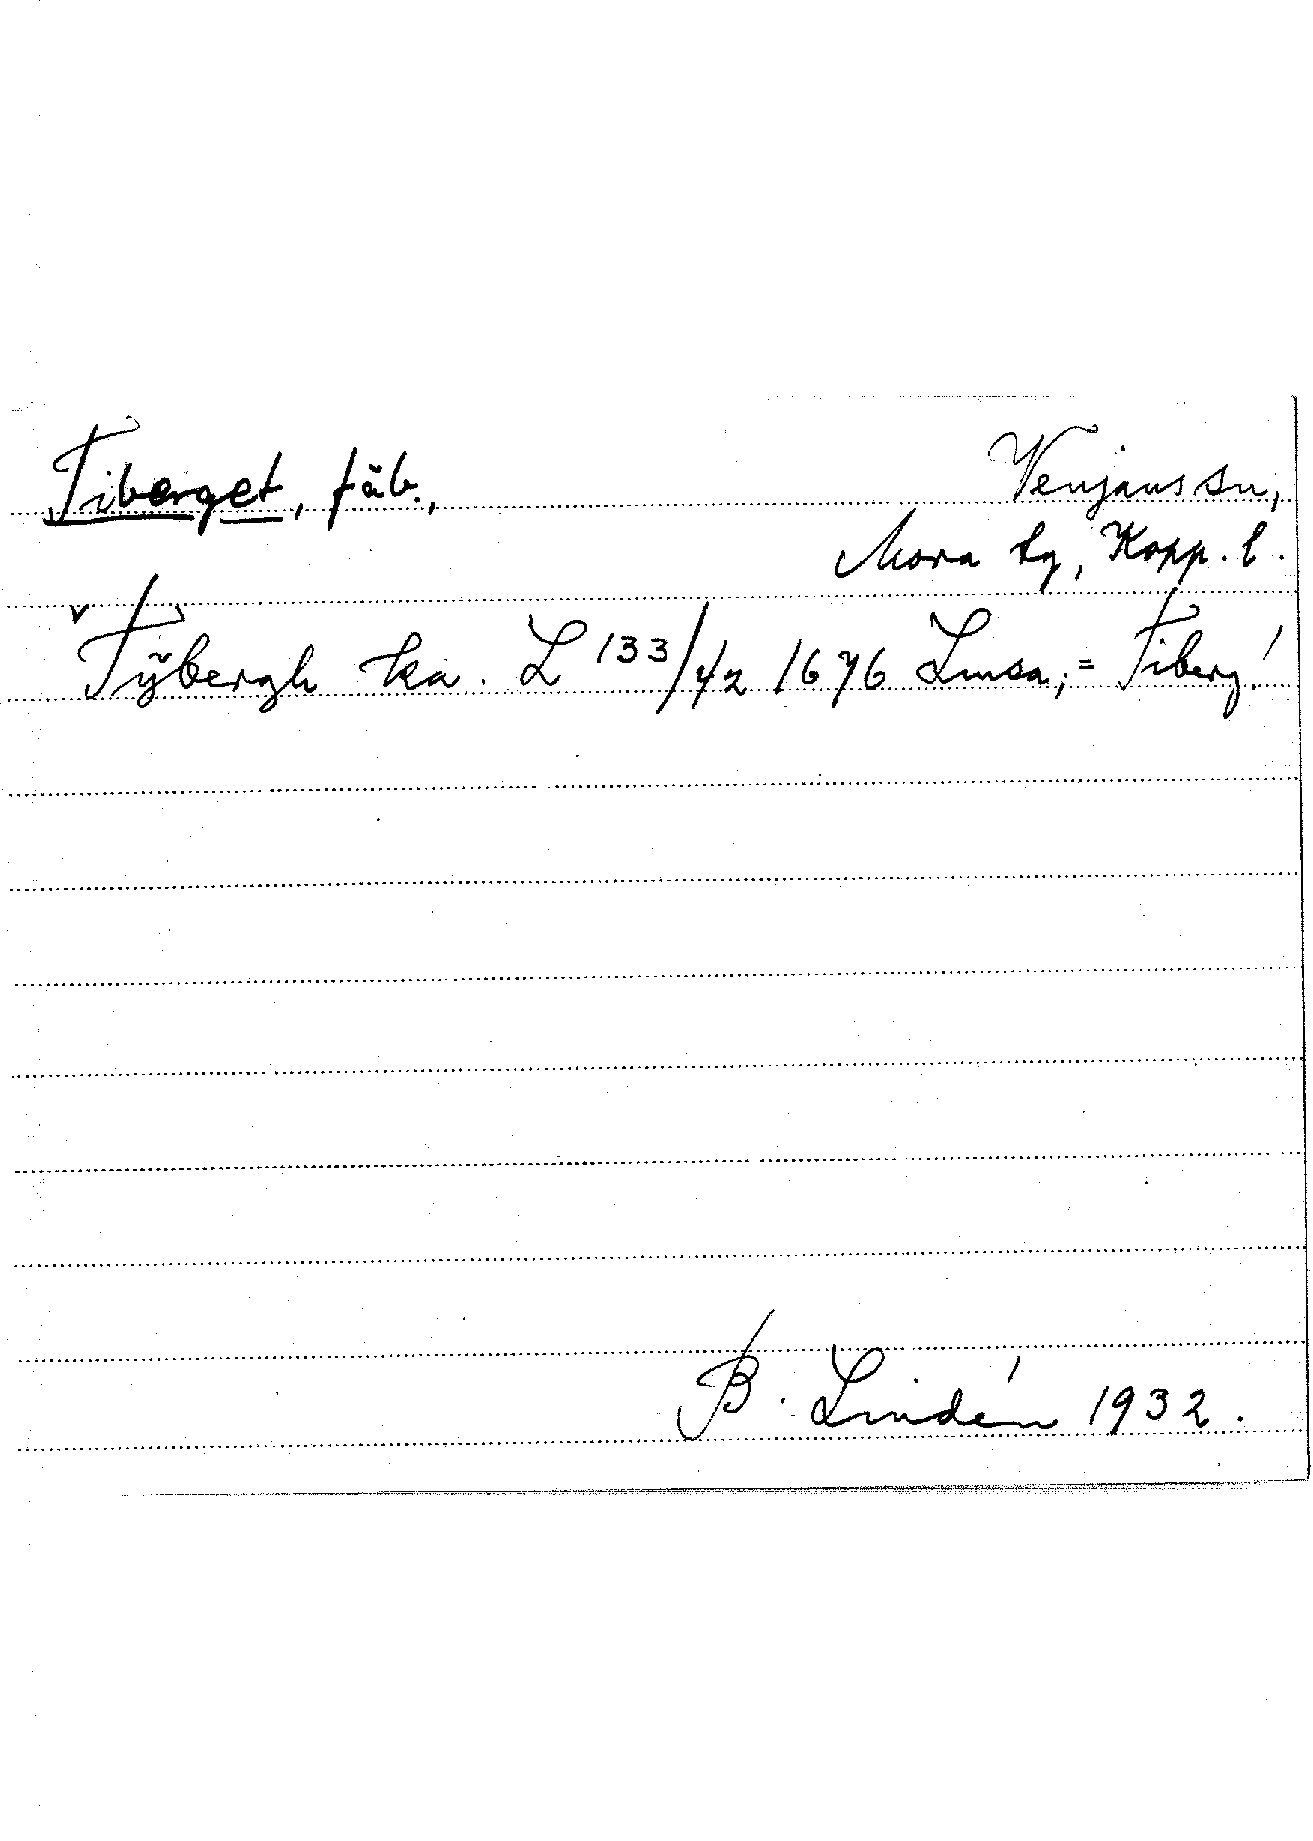 Tiberget, fäb., Venjans sn,
Mora tg, Kopp. l.
v Tÿbergh ka. L 133/42 1676 Lmsa; = Tiberg!
B. Lindén 1932.